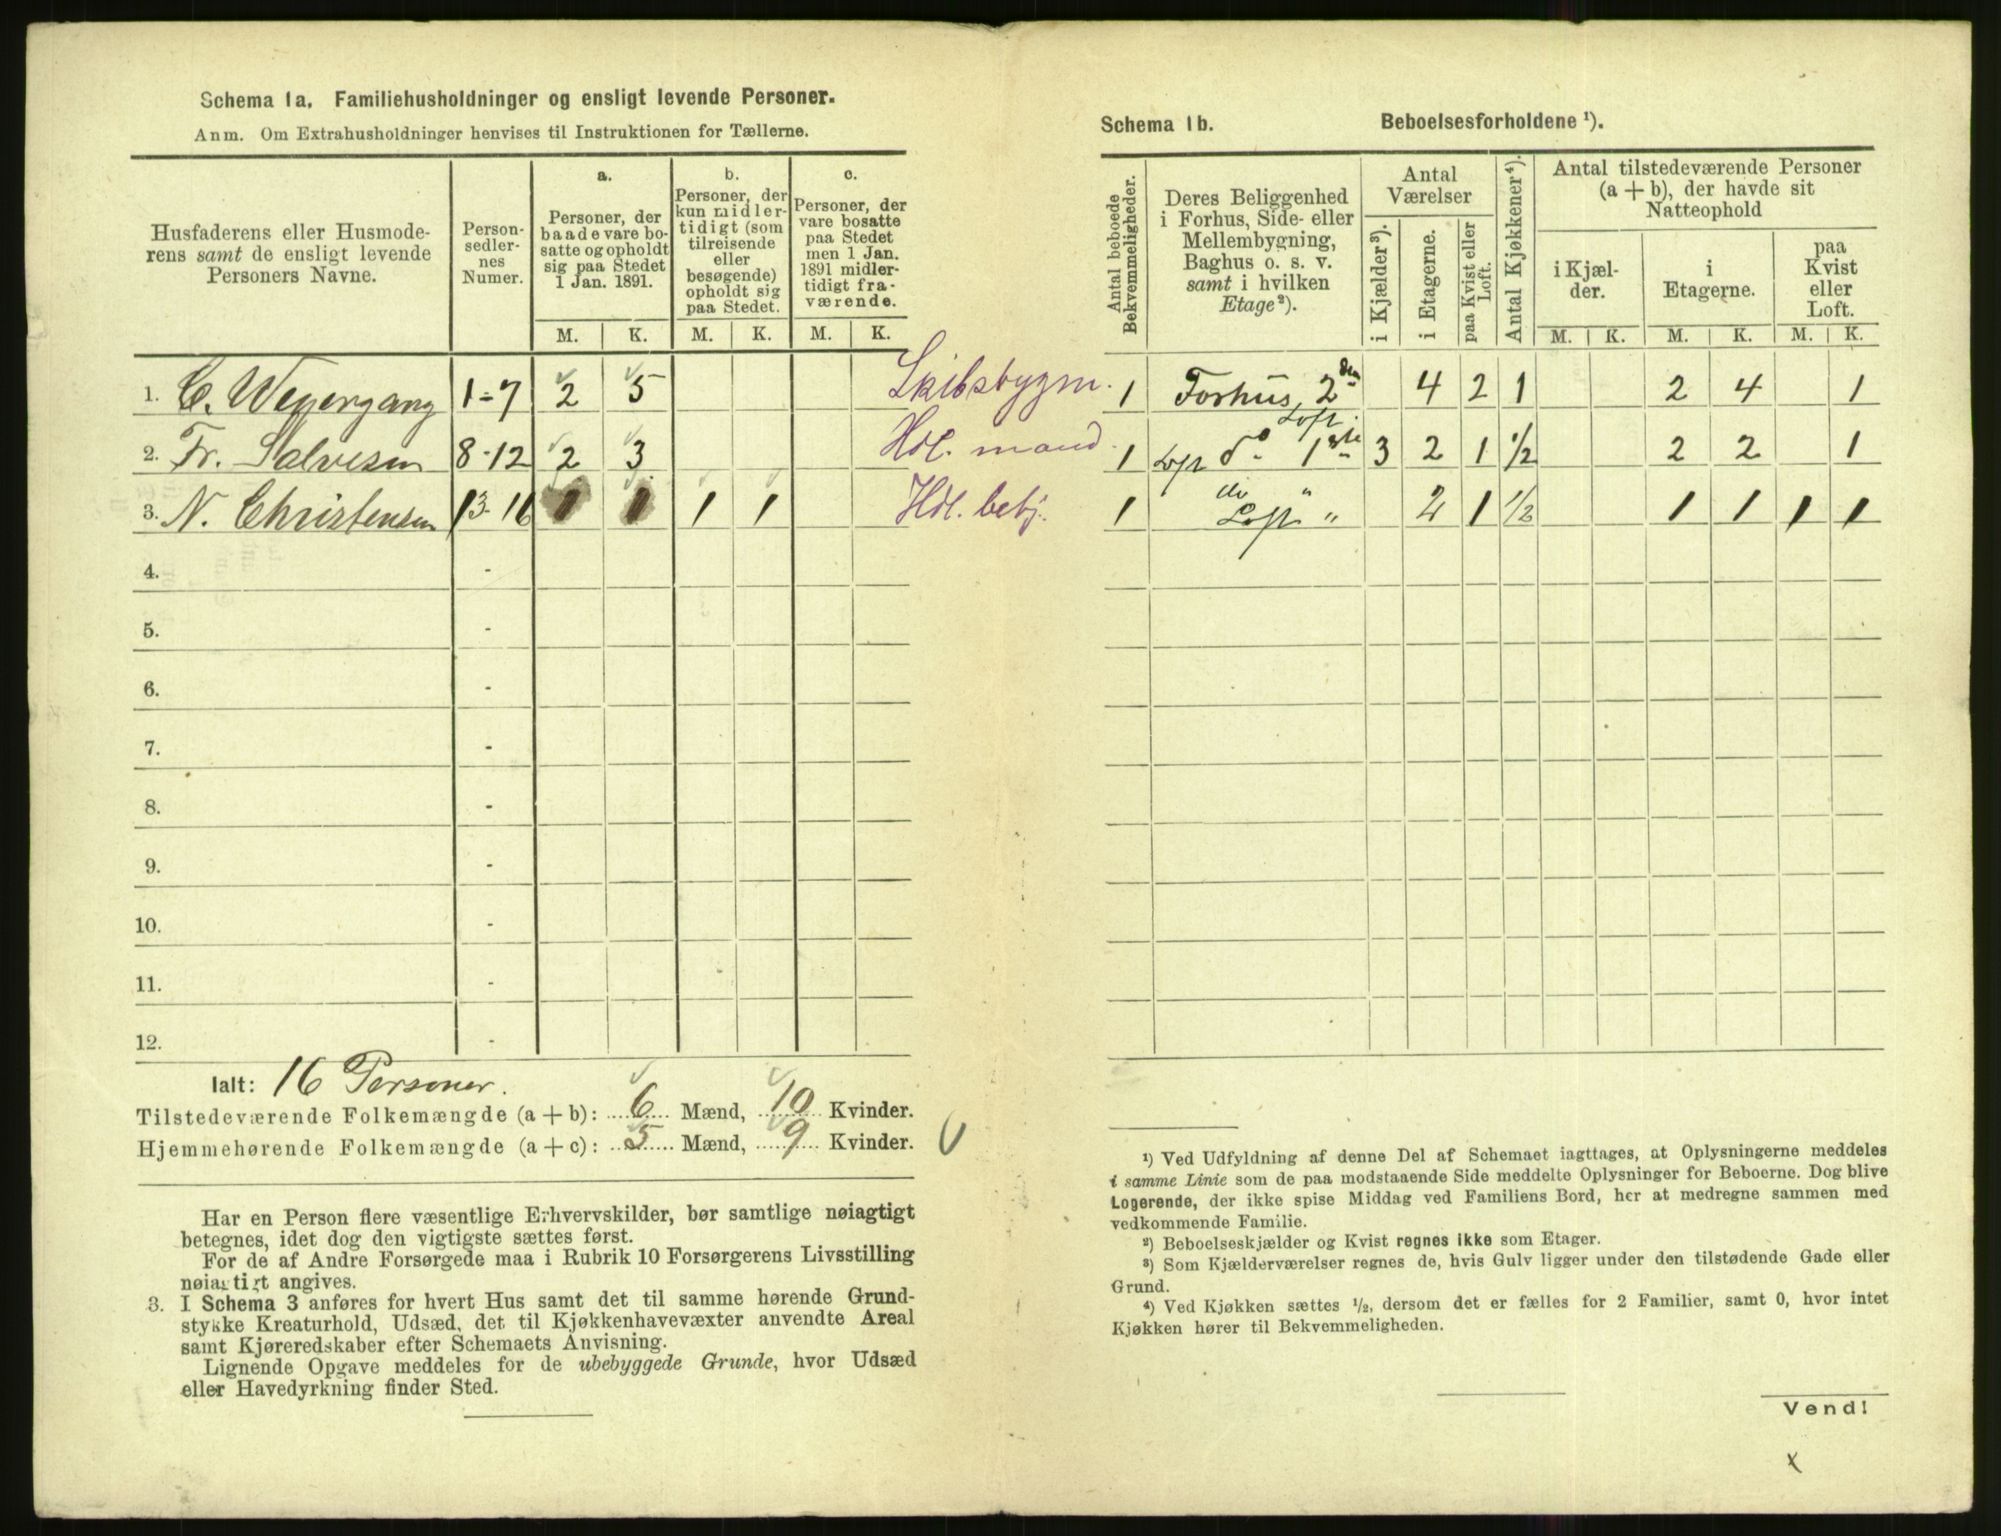 Schema 1a. Familiehusholdninger og ensligt levende Personer.
Anm. Om Extrahusholdninger henvises til Instruktionen for Tællerne.
Husfaderens eller Husmoderens samt de ensligt levende Personers Navne.
Personsedlernes Numer.
a.
Personer, der baade vare bosatte og opholdt sig paa Stedet 1 Jan. 1891.
b.
Personer, der kun midlertidigt (som tilreisende eller besøgende) opholdt sig paa Stedet.
c.
Personer, der vare bosatte paa Stedet men 1 Jan. 1891 midlertidigt fraværende.
M. K. M. K. M. K.
1. C. Wesfergang 1-7 2 5 Skibsbygm.
2. Fr. Salvesen 8-12 2 3 Hdl. mand.
3. N. Christensen 13-16 1 1 1 1 Hdl. betj.
4. -
5. -
6. -
7. -
8. -
9. -
10. -
11. -
12. -
Ialt: 16 Personer.
Tilstedeværende Folkemængde (a + b): 6 Mænd, 10 Kvinder.
Hjemmehørende Folkemængde (a + c): 5 Mænd, 9 Kvinder.
Har en Person flere væsentlige Erhvervskilder, bør samtlige nøiagtigt
betegnes, idet dog den vigtigste sættes først.
For de af Andre Forsørgede maa i Rubrik 10 Forsørgerens Livsstilling
nøiagtigt angives.
3. I Schema 3 anføres for hvert Hus samt det til samme hørende Grund-
stykke Kreaturhold, Udsæd, det til Kjøkkenhavevæxter anvendte Areal
samt Kjøreredskaber efter Schemaets Anvisning.
Lignende Opgave meddeles for de ubebyggede Grunde, hvor Udsæd
eller Havedyrkning finder Sted.
Schema 1b. Beboelsesforholdene ¹).
Antal beboede Bekvemmeligheder.
Deres Beliggenhed i Forhus, Side- eller Mellembygning, Baghus o. s. v. samt i hvilken Etage²).
Antal Værelser
i Kjælder³).
i Etagerne.
paa Kvist eller Loft.
Antal Kjøkkener⁴).
Antal tilstedeværende Personer (a + b), der havde sit Natteophold
i Kjælder.
i Etagerne.
paa Kvist eller Loft.
M. K. M. K. M. K.
1 Forhus, 2den Loft. 4 2 1 2 4 1
1 Loft do 1ste 3 2 1 ½ 2 2 1
1 do " Loft " 2 1 ½ 1 1 1 1
¹) Ved Udfyldning af denne Del af Schemaet iagttages, at Oplysningerne meddeles
i samme Linie som de paa modstaaende Side meddelte Oplysninger for Beboerne. Dog blive
Logerende, der ikke spise Middag ved Familiens Bord, her at medregne sammen med
vedkommende Familie.
²) Beboelseskjælder og Kvist regnes ikke som Etager.
³) Som Kjælderværelser regnes de, hvis Gulv ligger under den tilstødende Gade eller
Grund.
⁴) Ved Kjøkken sættes ½, dersom det er fælles for 2 Familier, samt 0, hvor intet
Kjøkken hører til Bekvemmeligheden.
Vend!
x